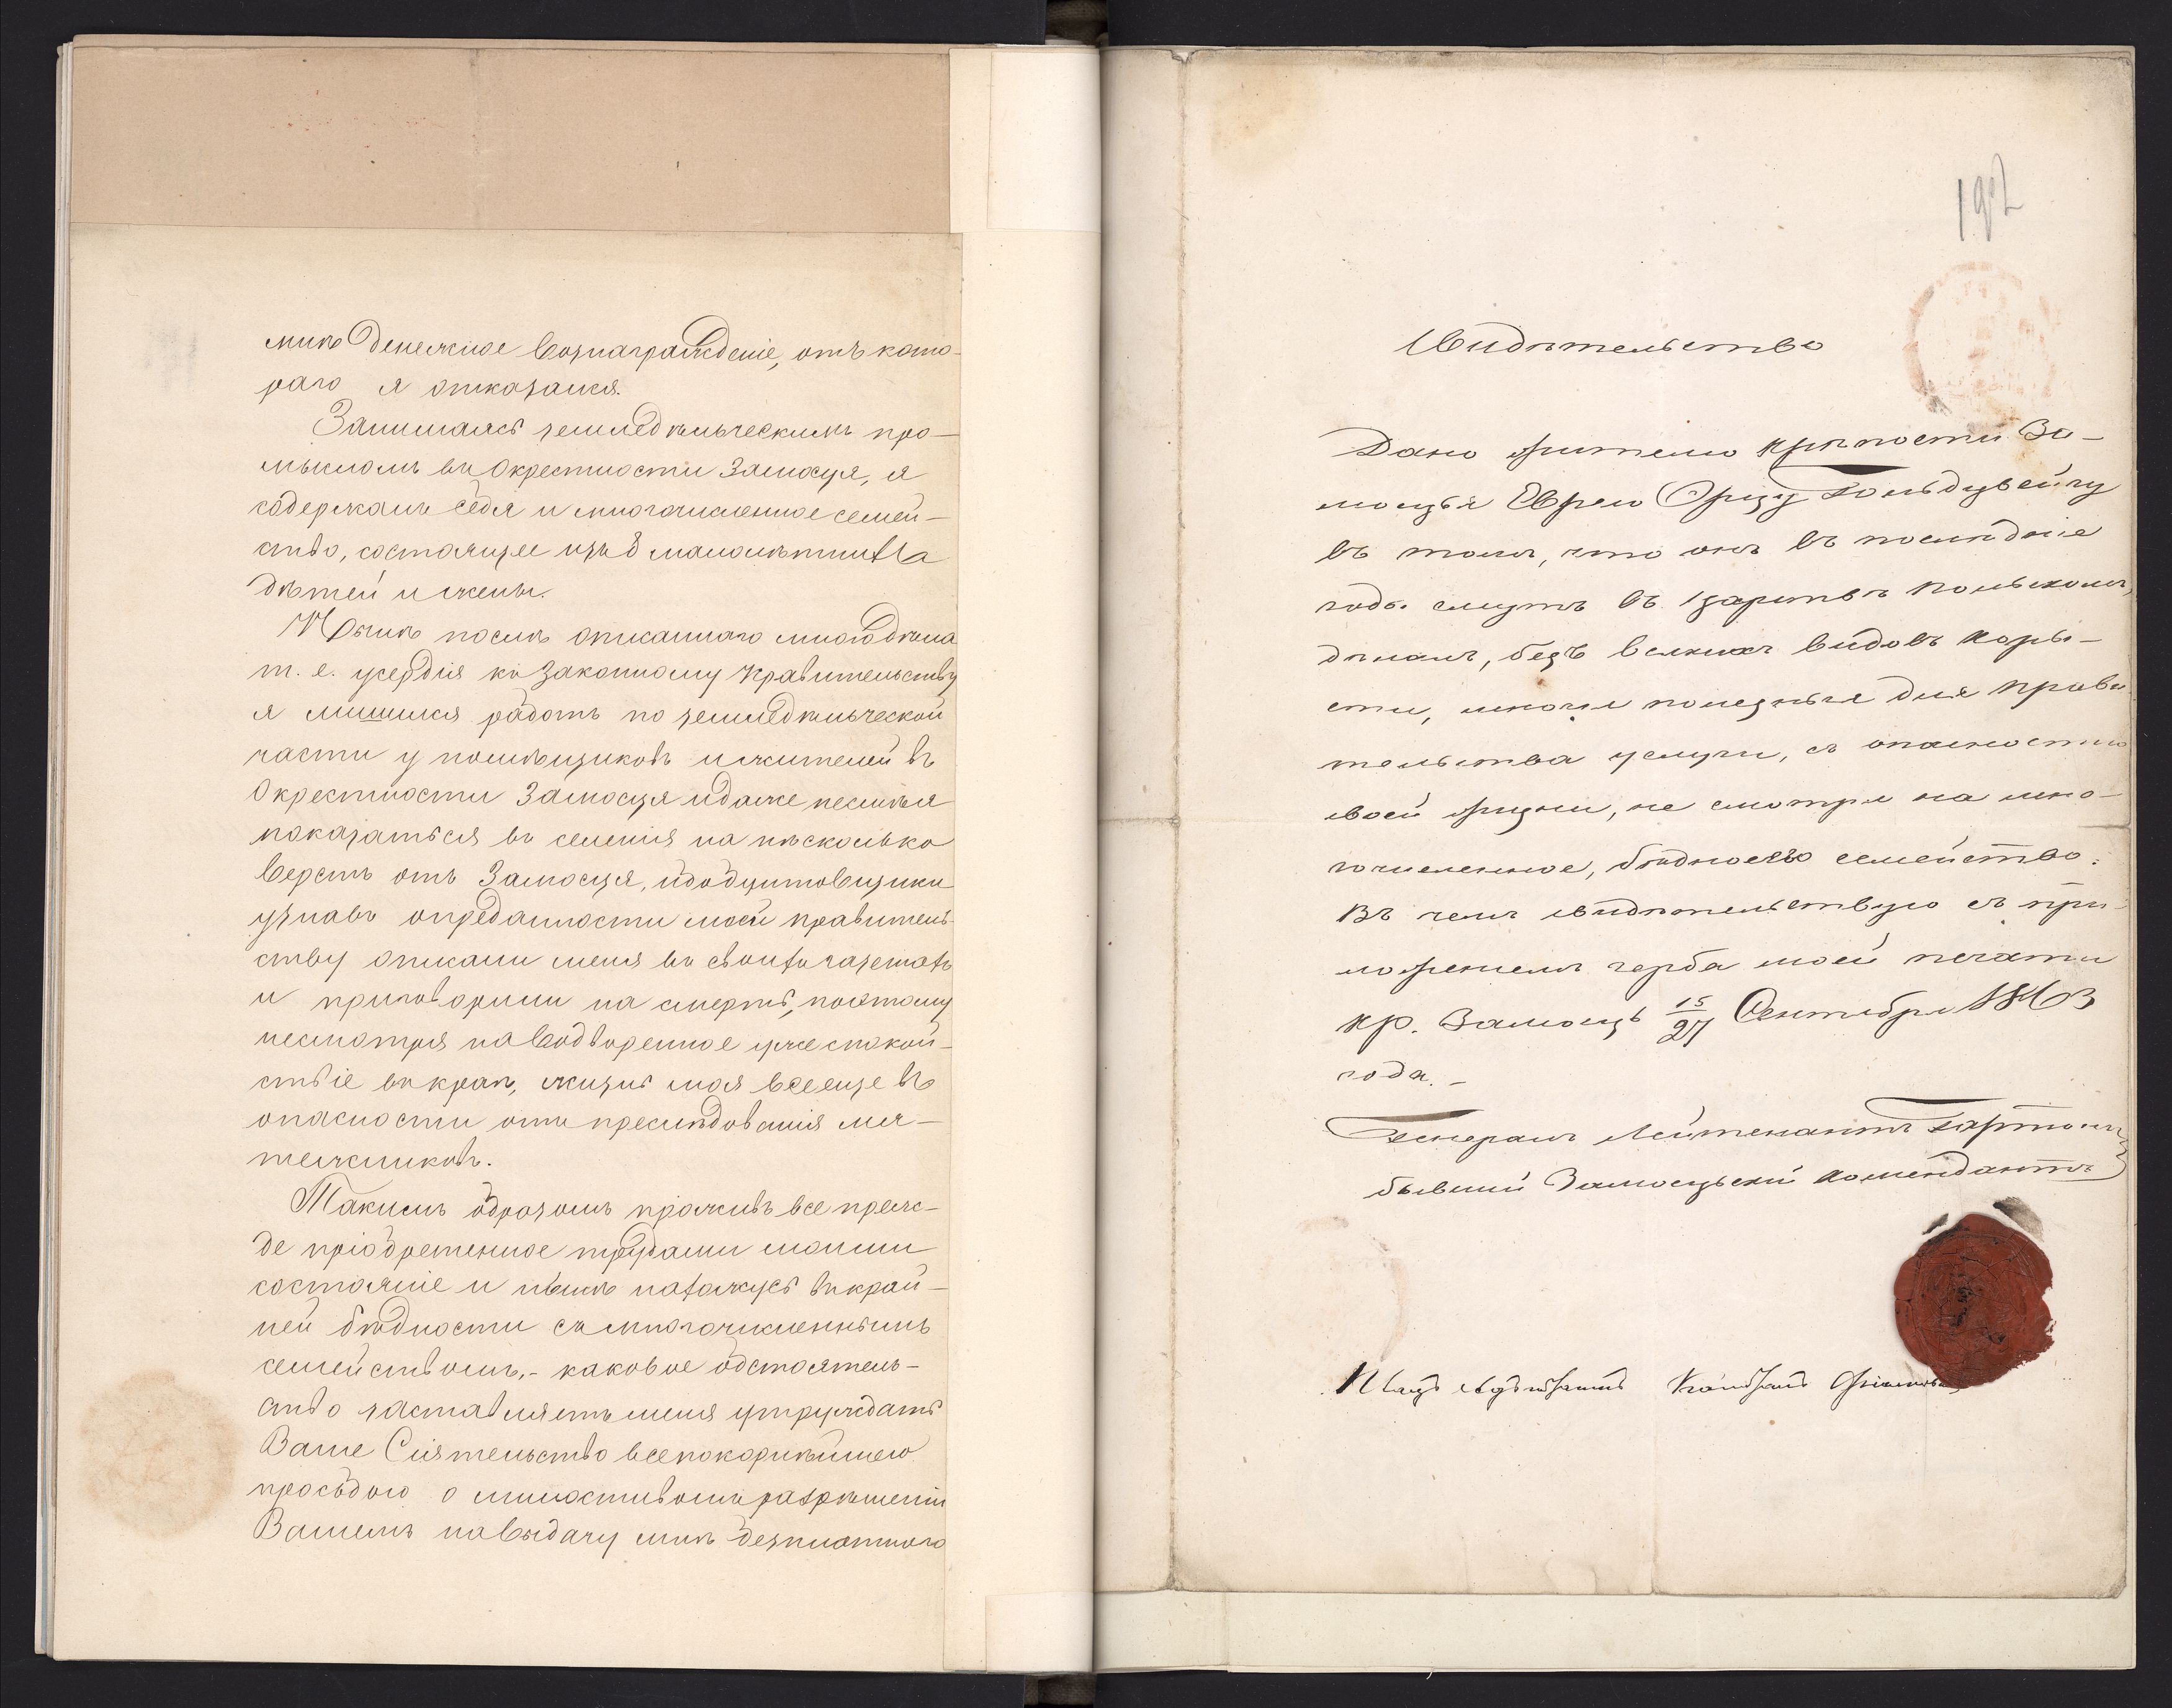 мнѣ денежное вознагражденіе, отъ кото-
раго я отказался.
Занимаясь земледѣльческимъ про-
мысломъ въ окрестности Замосця, я
содержалъ себя и многочисленное семей-
ство, состоящее изъ 8 малолѣтнихъ
дѣтей и жены.
Нынѣ послѣ описаннаго мною дѣла
т. е. усердія къ законному Правительству
я лишился работъ по земледѣльческой
части у помѣщиковъ и жителей въ
окрестности Замосця и даже несмѣя
показаться въ селенія на нѣсколько
верстъ отъ Замосця, ибо бунтовщики
узнавъ о преданности моей правитель-
ству описали меня въ своихъ газетахъ
и приговорили на смерть, поэтому
несмотря на водворенное уже спокой-
ствіе въ краѣ, жизнь моя все еще въ
опасности отъ преслѣдованія мя-
тежниковъ.
Такимъ образомъ проживъ все преж-
де пріобретенное трудами моими
состояніе и нынѣ нахожусь въ край-
ней бѣдности съ многочисленнымъ
семействомъ,- каковое обстоятель-
ство заставляетъ меня утруждать
Ваше Сіятельство всепокорнѣйшею
просьбою о милостивомъ разрѣшеніи
Вашемъ на выдачу мнѣ безплатнаго
192
Свидѣтельство
Дано жителю крѣпости За-
мосцья Еврею Оризу Гольдцвейгу
въ томъ, что онъ въ послѣдніе
годы смутъ въ Царствѣ Польскомъ,
дѣлалъ, безъ всякихъ видовъ коры-
сти, многія полезныя для прави-
тельства услуги, съ опасностію
своей жизни, не смотря на мно-
гочисленное, бѣдное его семейство.
Въ чемъ свидѣтельствую съ при-
ложеніемъ герба моей печати
кр. Замосць 15/27 Сентября 1863
года. -
Генералъ Лейтенантъ
бывшій Замосцьскій комендантъ
Плацъ Адъютантъ